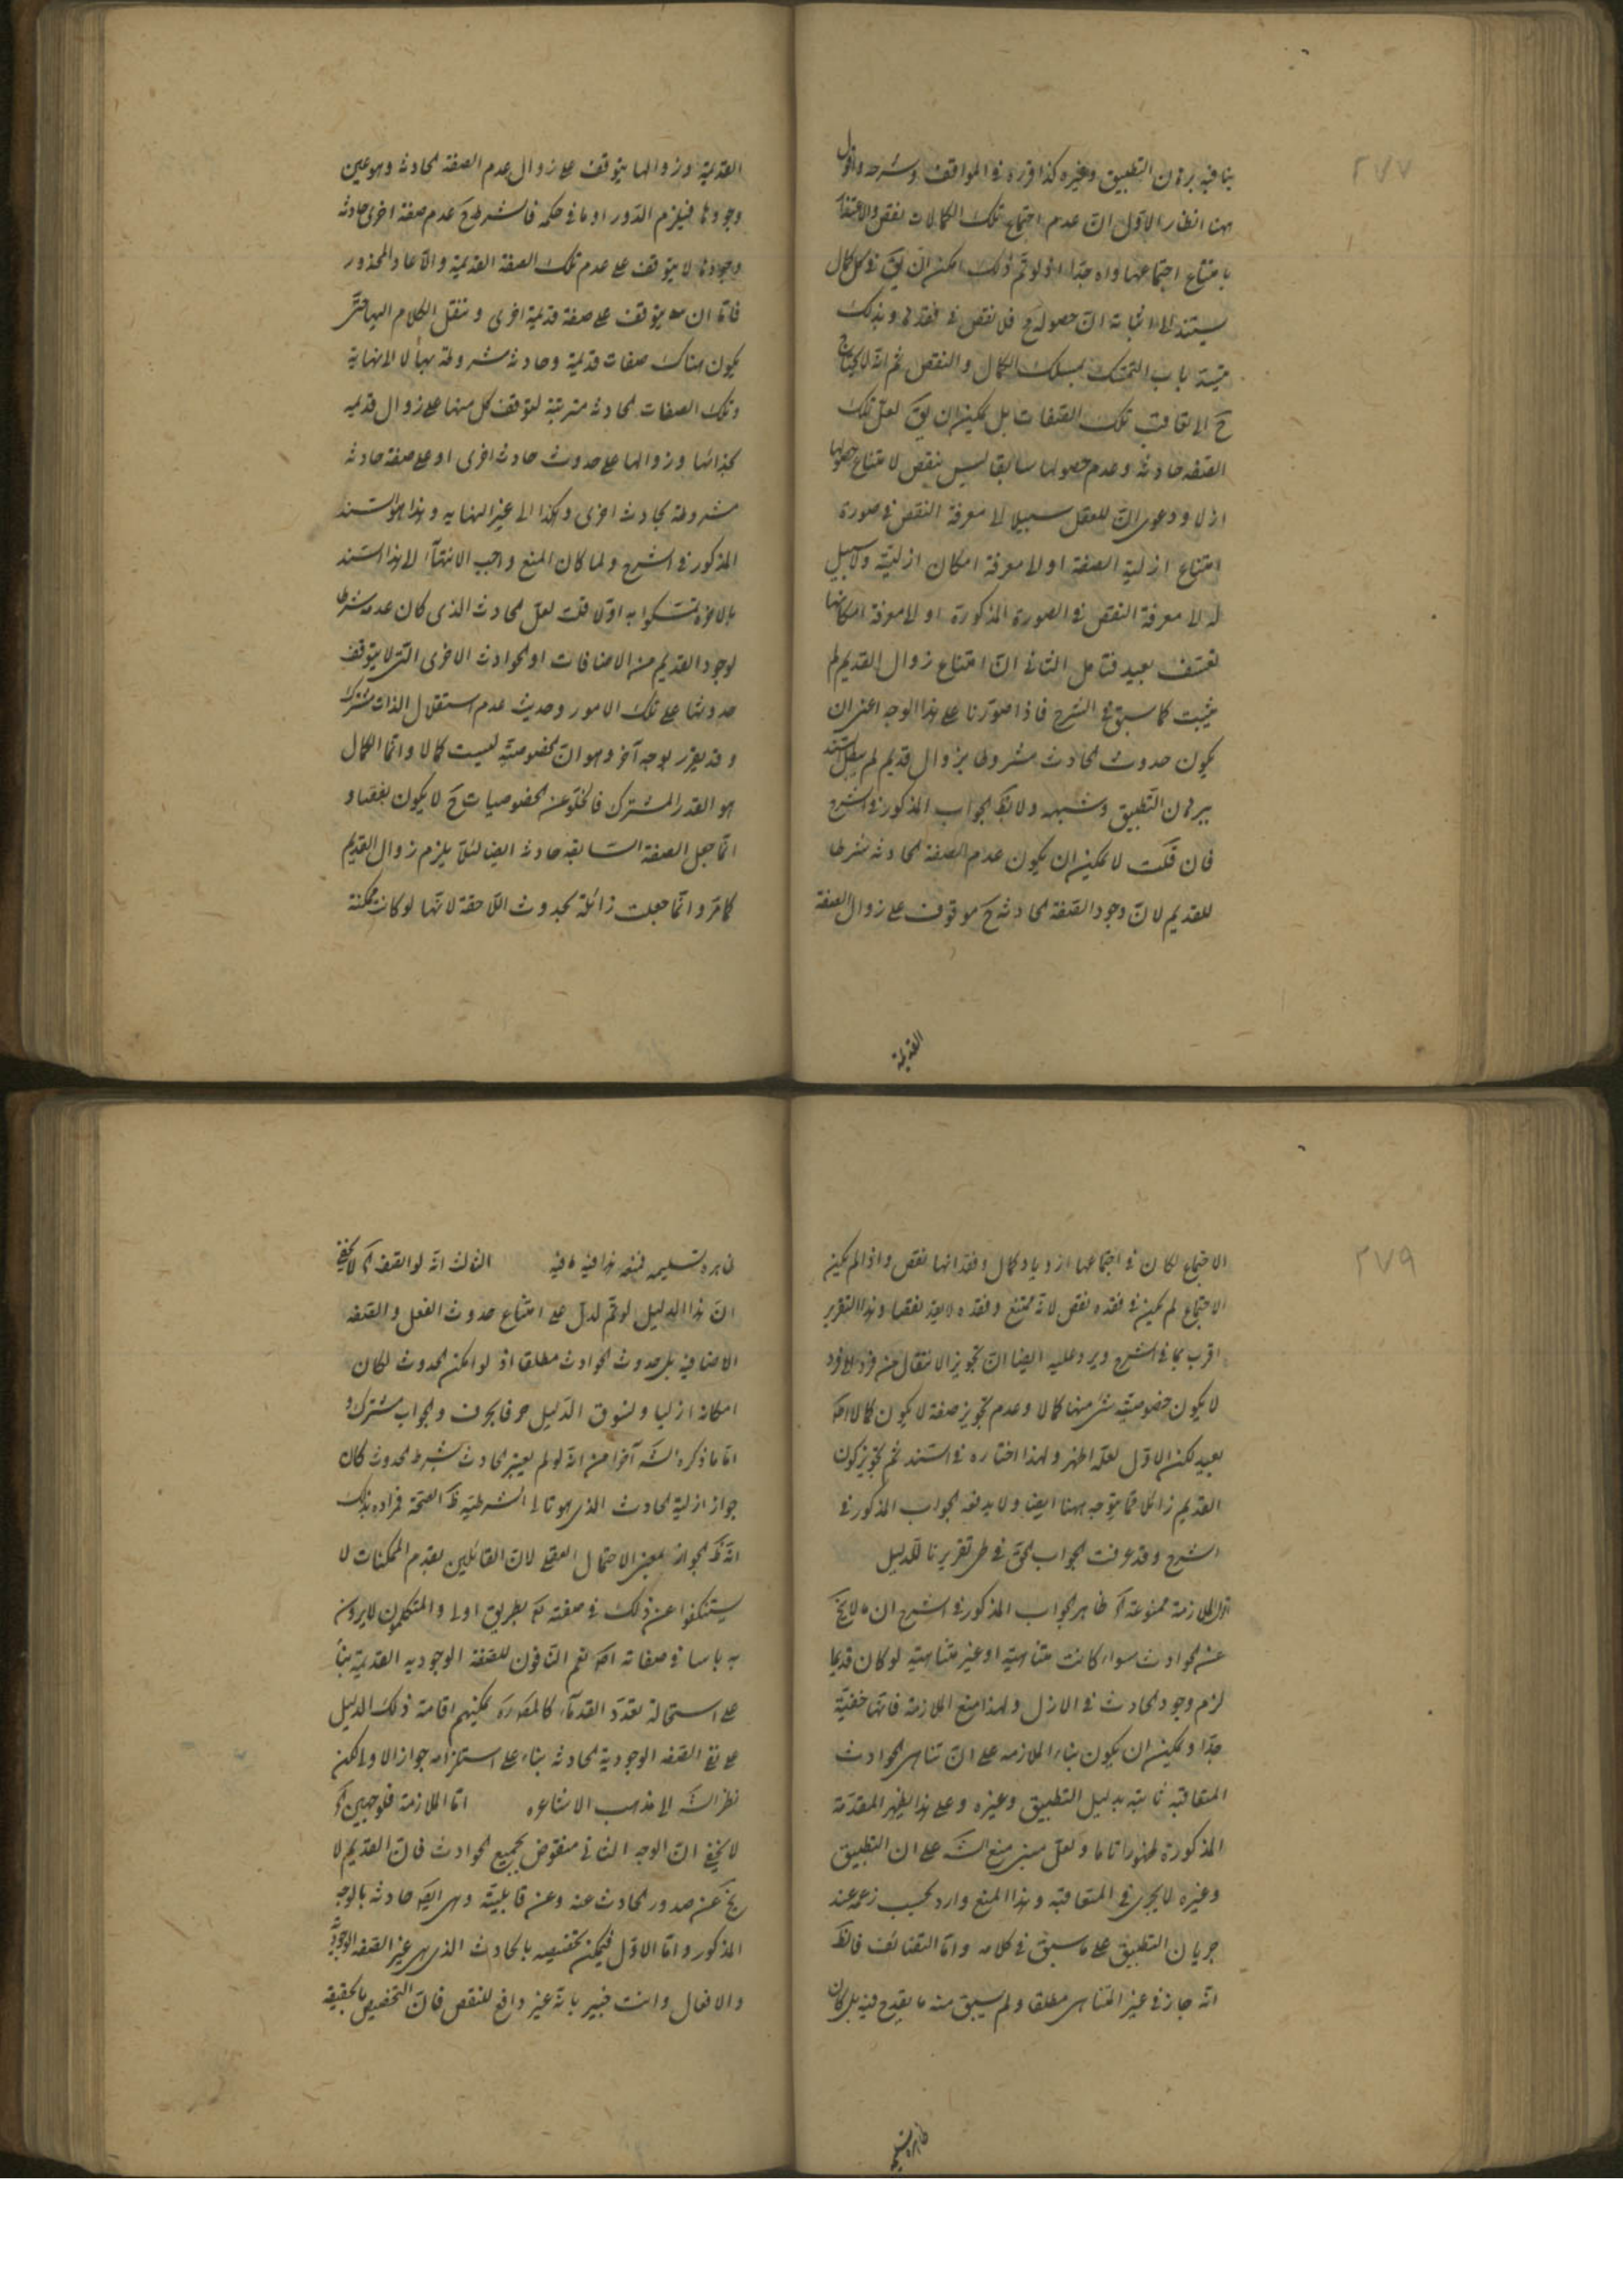 ٢٧٧
ينافيه برهان التطبيق وغيره كذا قرره في المواقف وشرحه واقول
ههنا انظار الاول ان عدم اجتماع تلك الكمالات نقص والاعتقاد
بامتناع اجتماعها واه جدا اذ لو تم ذلك امكن ان يق في كل كمال
يستند الى اثباته ان حصوله ح فلا نقص في فقده وبذلك
ينسد باب التمسك بمسلك الكمال والنقص ثم انه لا يحتاج
ح الى تعاقب تلك الصفات بل يمكن ان يق لعل تلك
الصفه حادثه وعدم حصولها سابقا ليس بنقص لامتناع حصولها
ازلا ودعوى ان للعقل سبيلا الى معرفة النقص في صورة
امتناع ازلية الصفة او لا معرفة امكان ازليته ولا سبيل
له الى معرفة النقص في الصورة المذكورة او لا معرفة امكانها
تعسف بعيد فتامل الثاني ان امتناع زوال القديم لم
يثبت كما سبق في الشرح فاذا صورنا على هذا الوجه اعني ان
يكون حدوث الحادث مشروطا بزوال قديم لم يبطل السند
ببرهان التطبيق وشبهه ولا يظ الجواب المذكور في الشرح
فان قلت لا يمكن ان يكون عدم الصفة الحادثه شرطا
للقديم لان وجود الصفة الحادثه ح موقوف على زوال الصفة
القديمة
القديمة وزوالها يتوقف على زوال عدم الصفة الحادثه وهو عين
وجودها فيلزم الدور او ما في حكمه فالشرط ح عدم صفة اخرى حادثه
وجودها لا يتوقف على عدم تلك الصفة القديمة والا عاد المحذور
فاما ان يتوقف على صفة قديمة اخرى وننقل الكلام اليها حتى
يكون هناك صفات قديمة وحادثه مشروطة بها لا الى نهاية
وتلك الصفات الحادثه مترتبة لتوقف كل منها على زوال قديمه
بحذائها وزوالها على حدوث حادث اخرى او على صفة حادثه
مشروطة بحادث اخرى وهكذا الى غير النهايه وهذا هو السند
المذكور في الشرح ولما كان المنع واجب الانتهاء الى هذا السند
بالاخره تمسكوا به اولا قلت لعل الحادث الذى كان عدمه شرطا
لوجود القديم من الاضافات او الحوادث الاخرى التي لا يتوقف
حدوثها على تلك الامور وحديث عدم استقلال الذات مشترك
وقد يقرر بوجه آخر وهو ان الخصوصية ليست كمالا وانما الكمال
هو القدر المشترك فالخلو عن الخصوصيات ح لا يكون نقصا و
انما جعل الصفة السابقه حادثه ايضا لئلا يلزم زوال القديم
كما مر وانما جعلت زائلة بحدوث اللاحقة لانها لو كانت ممكنة
٢٧٩
الاجتماع لكان في اجتماعها ازدياد كمال وفقدانها نقص واذا لم يكن
الاجتماع لم يكن في فقده نقص لانه ممتنع وفقده لا يعد نقصا وهذا التقرير
اقرب بما في الشرح ويرد عليه ايضا ان تجويز الانتقال من فرد الى فرد
لا يكون خصوصية شئ منها كمالا وعدم تجويز صفة لا يكون كمالا اصلا
بعيد لكن الاول لعله اظهر ولهذا اختاره في السند ثم تجويز كون
القديم زائلا مما يتوجه ههنا ايضا ولا يدفعه الجواب المذكور في
الشرح وقد عرفت الجواب الحق في طي تقريرنا للدليل
قوله الملازمة ممنوعة آه ظاهر الجواب المذكور في الشرح ان ما لا يخ
عن الحوادث سواء كانت متناهية او غير متناهية لو كان قديما
لزم وجود الحادث في الازل ولهذا منع الملازمة فانها خفية
جدا ويمكن ان يكون بناء الملازمه على ان تناهى الحوادث
المتعاقبه ثابته بدليل التطبيق وغيره وعلى هذا يظهر المقدمة
المذكورة ظهورا تاما ولعل مبنى منع الش على ان التطبيق
وغيره لا يجرى في المتعاقبه وهذا المنع وارد بحسب زعمه عند
جريان التطبيق على ما سبق في كلامه واما التضائف فالظ
انه جاز في غير المتناهى مطلقا ولم يسبق منه ما يقدح فيه بل كان
ظاهره تسليمه
ظاهره تسليمه ففيه هذا فيه ما فيه الثالث انه لو اتصف آه لا يخفى
ان هذا الدليل لو تم لدل على امتناع حدوث الفعل والصفه
الاضافيه بل حدوث الحوادث مطلقا اذ لو امكن الحدوث لكان
امكانه ازليا ونسوق الدليل حرفا بحرف والجواب مشترك و
اما ما ذكره الش آخرا من انه لو لم يعتبر الحادث بشرط الحدوث كان
جواز ازلية الحادث الذى هو تالى الشرطية ظ الصحة فمراده بذلك
انه ظ الجواز بمعنى الاحتمال العقلى لان القائلين بقدم الممكنات لا
يستنكفوا عن ذلك في صفته تع بطريق اولى والمتكلمون لا يرون
به باسا في صفاته اصلا نعم النافون للصفة الوجوديه القديمة بناء
على استحالة تعدد القدماء كالمعتزلة يمكنهم اقامة ذلك الدليل
على نفى الصفه الوجودية الحادثه بناء على استلزامه جواز الاولى لكن
نظر الش الى مذهب الاشاعره اما الملازمة فلوجهين آه
لا يخفى ان الوجه الثاني منقوض بجميع الحوادث فان القديم لا
يخ عن صدور الحادث عنه وعن قابليته وهى ايضا حادثه بالوجه
المذكور واما الاول فيمكن تخصيصه بالحادث الذى هى غير الصفه الوجودية
والافعال وانت خبير بانه غير دافع للنقص فان التخصيص بالحقيقه